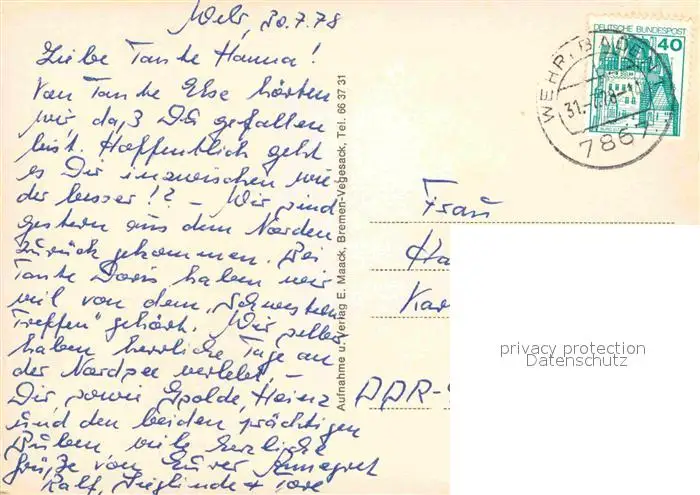 Wehr, 30.7.78
Liebe Tante Hanna!
Von Tante Else hörten
wir daß Du gefallen
bist. Hoffentlich geht
es Dir inzwischen wie-
der besser!? – Wir sind
gestern aus dem Norden
zurück gekommen. Bei
Tante Doris haben wir
viel von dem „Schwestern
Treffen" gehört. Wir selber
haben herrliche Tage an
der Nordsee verlebt. –
Dir sowie Isolde, Heinz
und den beiden prächtigen
Buben viele herzliche
Grüße von Eurer Annegret
Ralf, Sieglinde +
Aufnahme u. Verlag E. Maack, Bremen-Vegesack, Tel. 66 37 31
DEUTSCHE BUNDESPOST
40
WEHR, BADEN 1
31.-7.78-11
7867
Frau
Ha
Kar
DDR-
privacy protection
Datenschutz